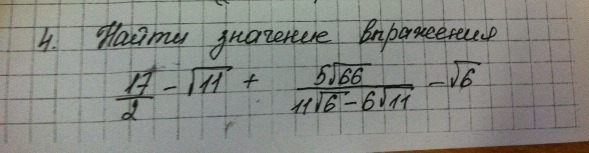 4. Найти значение впражения
17/2 - √11 + 5√66/(11√6 - 6√11) - √6